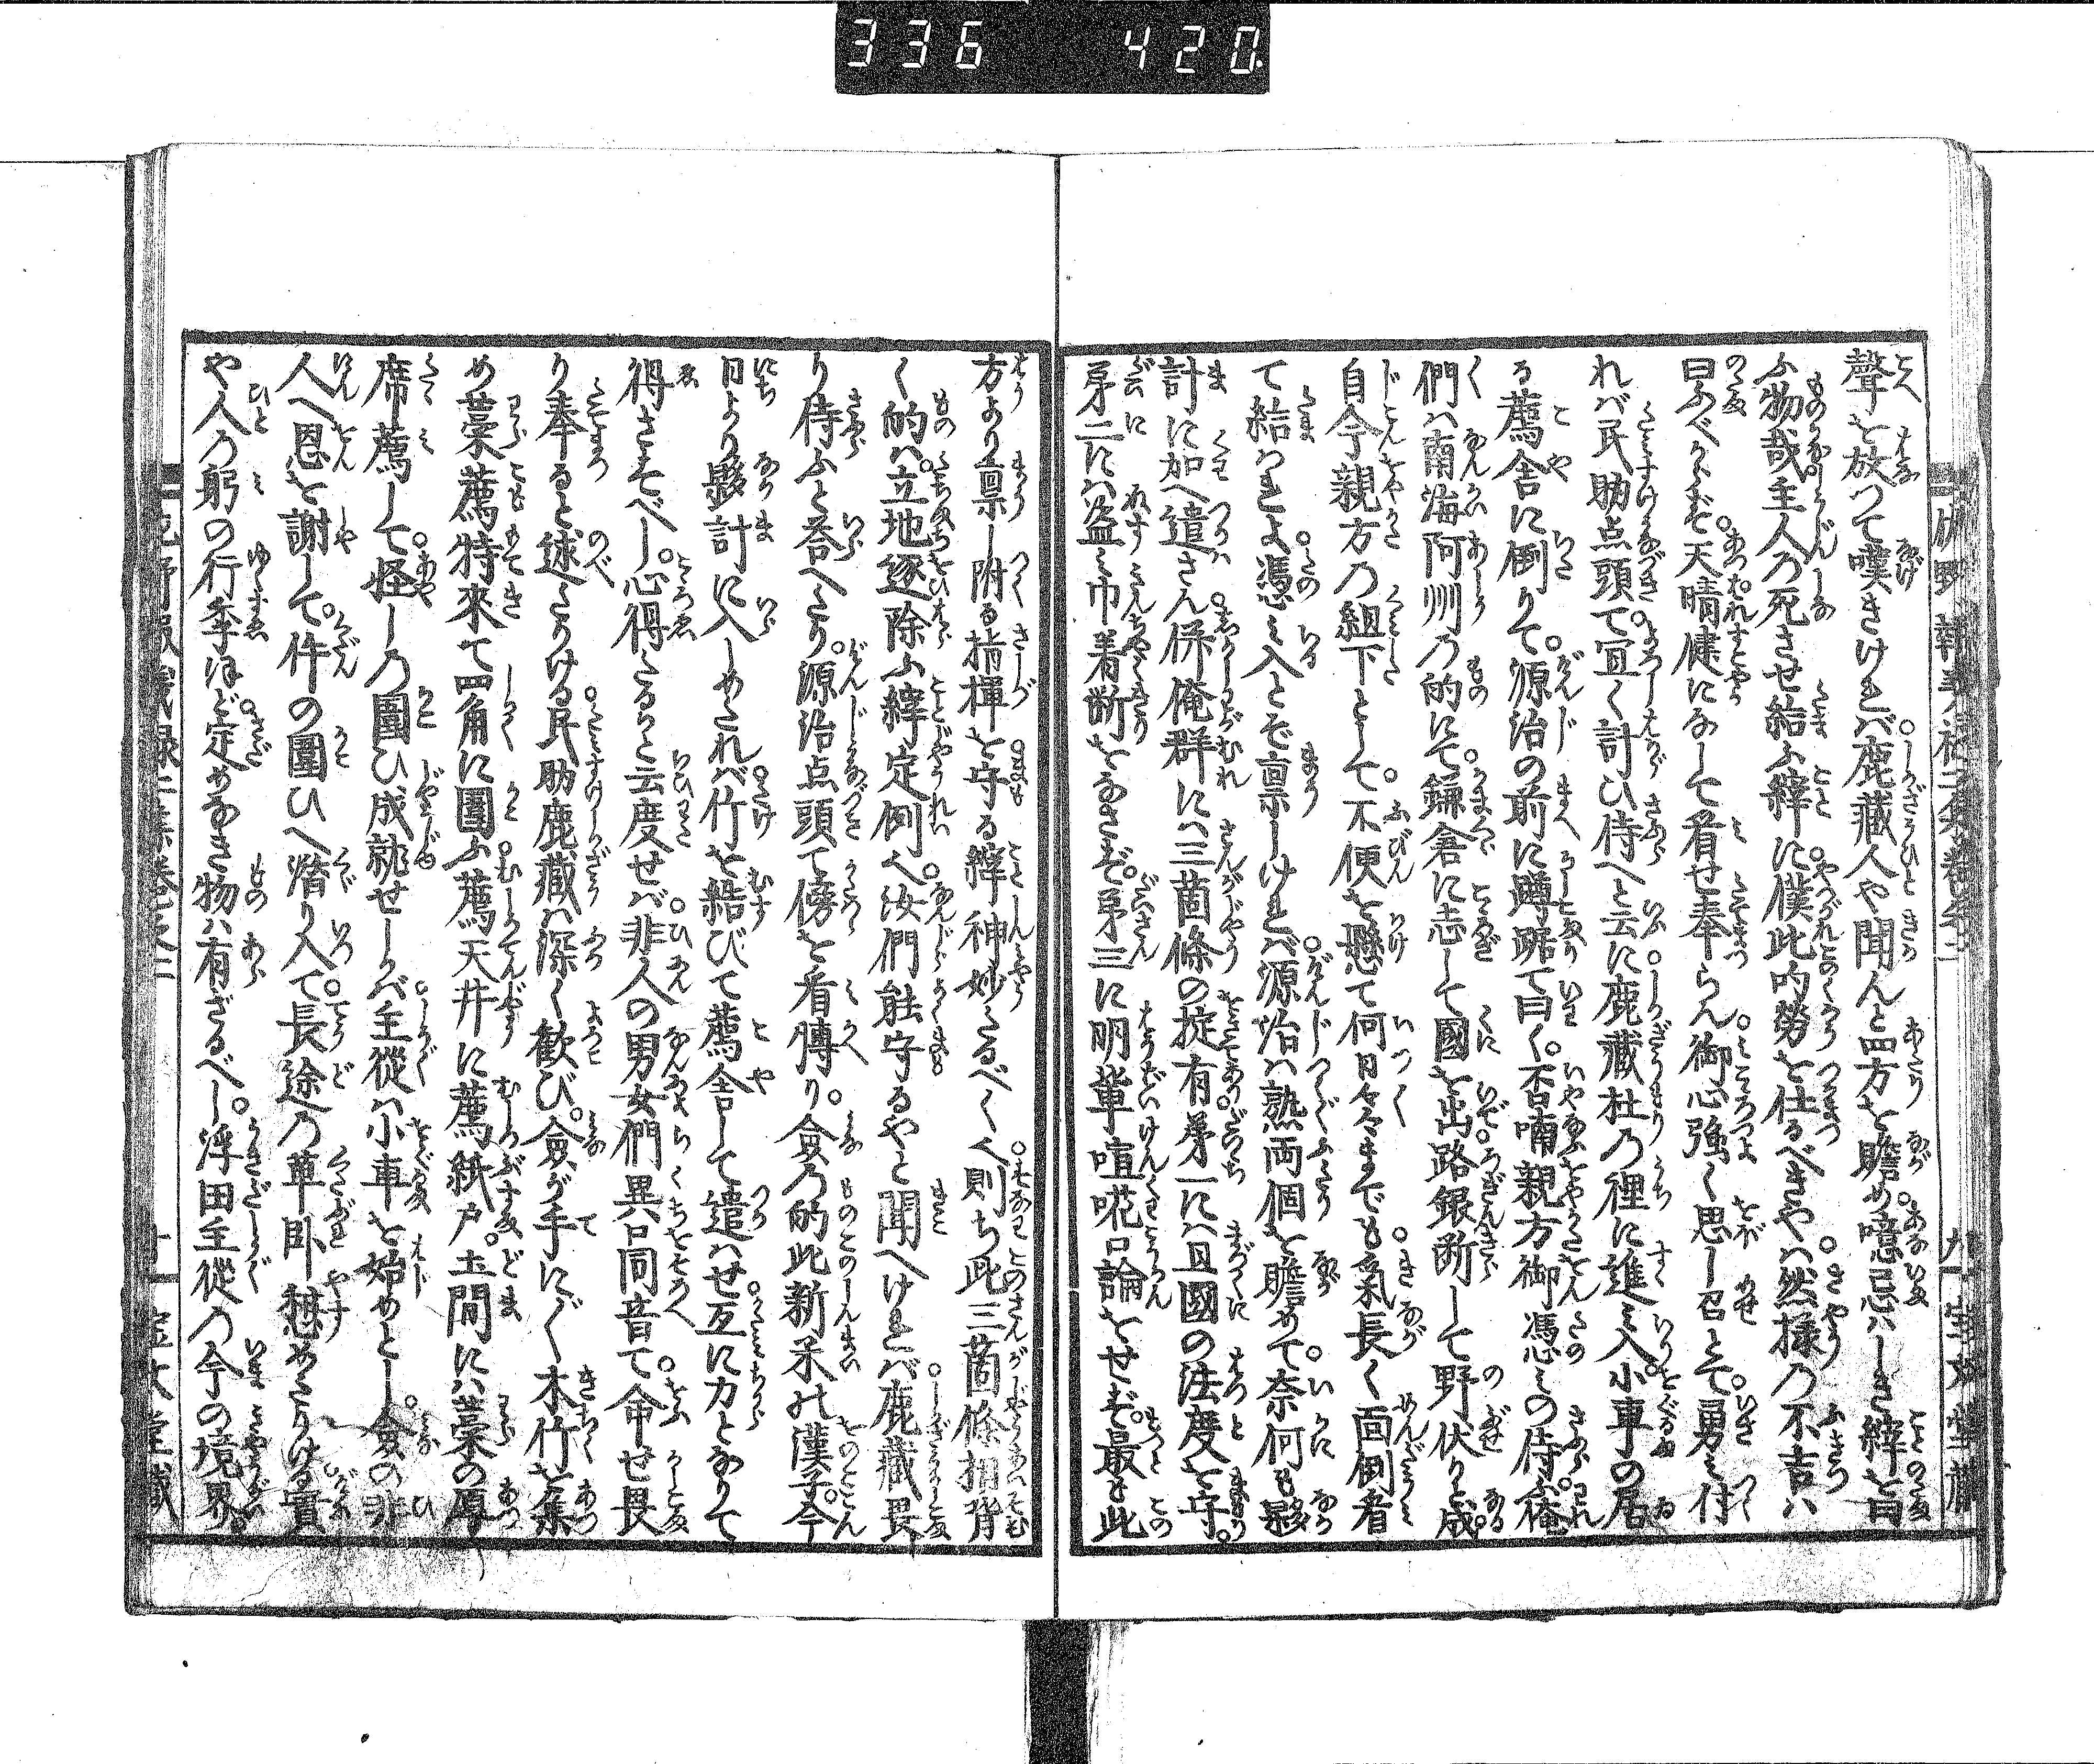 336 420
聲を放つて嘆きければ鹿藏人や聞んと四方を瞻め噫忌はしき縡を曰
ふ物哉主人の死させ給ふ縡に僕此内勞を仕るべきやは然様の不吉は
曰ふべからず天晴健になして看せ奉らん御心強く思し召とて勇み付
れば民助点頭て宜く計ひ侍へと云に鹿藏杜の裡に進み入小車の居
る薦舎に倒りて源治の前に蹲踞て曰く否喃親方御憑みの侍ふ俺
們は南海阿州の的にて鎌倉に志して國を出路銀断して野伏りと成
自今親方の組下として不便を懸て何日々々までも氣長く面倒看
て給はきよ憑み入とぞ禀しければ源治は熟両個を瞻めて奈何も夥
計に加へ遣さん併俺群には三箇條の掟有第一には且國の法度を守
第二には盗み巾着断をなさず第三に明輩喧𠵅口論をせず最も此
方より禀し附る指揮を守る縡神妙たるべく則ち此三箇條相背
く的は立地逐除ふ縡定例へ汝們能守るやと聞へければ鹿藏畏
り侍ふと荅へたり源治点頭て傍を看轉り僉乃的此新釆の漢子今
日より夥計に入しめたれば竹を結びて薦舎して遣はせ互に力となりて
得させべし心得たるかと云度せば非人の男女們異口同音て命せ畏
り奉ると述たりける民助鹿藏は深く歓び僉が手に〲木竹を集
め藁薦特來て四角に圍ふ薦天井に薦紙戸土間には藁の厚
席薦して怪しの圍ひ成就せしかば主從は小車を始めとし僉の非
人へ恩を謝して件の圍ひへ潜り入て長途の草卧憩めたりける實
や人の躬の行季ほど定めなき物は有ざるべし浮田主從の今の境界